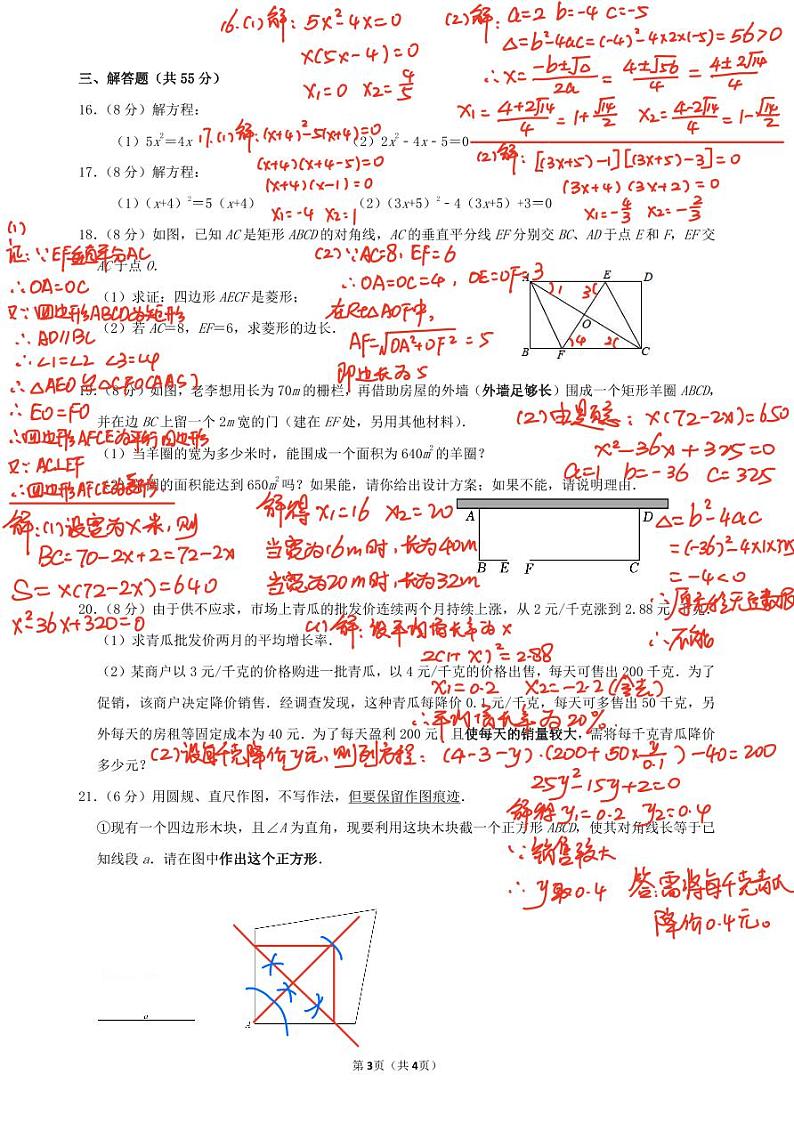 16.(1)解：5x²-4x=0
x(5x-4)=0
x₁=0 x₂=4/5
(2)解：a=2 b=-4 c=-5
△=b²-4ac=(-4)²-4×2×(-5)=56>0
∴x=(-b±√△)/2a=(4±√56)/4=(4±2√14)/4
x₁=(4+2√14)/4=1+√14/2 x₂=(4-2√14)/4=1-√14/2
三、解答题（共 55 分）
16．（8 分）解方程：
（1）5x²＝4x （2）2x²﹣4x﹣5＝0
17.(1)解：(x+4)²-5(x+4)=0
(x+4)(x+4-5)=0
(x+4)(x-1)=0
x₁=-4 x₂=1
(2)解：[(3x+5)-1][(3x+5)-3]=0
(3x+4)(3x+2)=0
x₁=-4/3 x₂=-2/3
17．（8 分）解方程：
（1）(x+4)²＝5（x+4） （2）(3x+5)²﹣4（3x+5）+3＝0
18．（8 分）如图，已知 AC 是矩形 ABCD 的对角线，AC 的垂直平分线 EF 分别交 BC、AD 于点 E 和 F，EF 交
AC 于点 O．
（1）求证：四边形 AECF 是菱形；
（2）若 AC＝8，EF＝6，求菱形的边长．
(1)
证：∵EF垂直平分AC
∴OA=OC
又∵四边形ABCD为矩形
∴AD∥BC
∴∠1=∠2 ∠3=∠4
∴△AEO≌△CFO(AAS)
∴EO=FO
∴四边形AFCE为平行四边形
又∵AC⊥EF
∴四边形AFCE为菱形
(2)∵AC=8，EF=6
∴OA=OC=4，OE=OF=3
在Rt△AOF中，
AF=√OA²+OF²=5
即边长为5
A E D
1 3
O
4 2
B F C
19．（8 分）如图，老李想用长为 70m 的栅栏，再借助房屋的外墙（外墙足够长）围成一个矩形羊圈 ABCD，
并在边 BC 上留一个 2m 宽的门（建在 EF 处，另用其他材料）．
（1）当羊圈的宽为多少米时，能围成一个面积为 640m²的羊圈？
（2）羊圈的面积能达到 650m²吗？如果能，请你给出设计方案；如果不能，请说明理由．
解：(1)设宽为x米，则
BC=70-2x+2=72-2x
S=x(72-2x)=640
x²36x+320=0
解得x₁=16 x₂=20
当宽为16m时，长为40m
当宽为20m时，长为32m
(2)由题意：x(72-2x)=650
x²-36x+325=0
a=1 b=-36 c=325
△=b²-4ac
=(-36)²-4×1×325
=-4<0
∴原方程无实数根
∴不能
A D
B E F C
20．（8 分）由于供不应求，市场上青瓜的批发价连续两个月持续上涨，从 2 元/千克涨到 2.88 元/千克．
（1）求青瓜批发价两月的平均增长率．
（2）某商户以 3 元/千克的价格购进一批青瓜，以 4 元/千克的价格出售，每天可售出 200 千克．为了
促销，该商户决定降价销售．经调查发现，这种青瓜每降价 0.1 元/千克，每天可多售出 50 千克，另
外每天的房租等固定成本为 40 元．为了每天盈利 200 元，且使每天的销量较大，需将每千克青瓜降价
多少元？
(1)解：设平均增长率为x
2(1+x)²=2.88
x₁=0.2 x₂=-2.2(舍去)
∴平均增长率为20%.
(2)设每千克降价y元，则列方程：(4-3-y)·(200+50×y/0.1)-40=200
25y²-15y+2=0
解得y₁=0.2 y₂=0.4
∵销售较大
∴y取0.4 答：需将每千克青瓜
降价0.4元。
21．（6 分）用圆规、直尺作图，不写作法，但要保留作图痕迹．
①现有一个四边形木块，且∠A 为直角，现要利用这块木块截一个正方形 ABCD，使其对角线长等于已
知线段 a．请在图中作出这个正方形．
a
A
第 3页（共 4页）